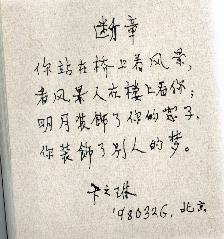 断章
你站在桥上看风景,
看风景人在楼上看你;
明月装饰了你的窗子,
你装饰了别人的梦。
卞之琳
'980326, 北京